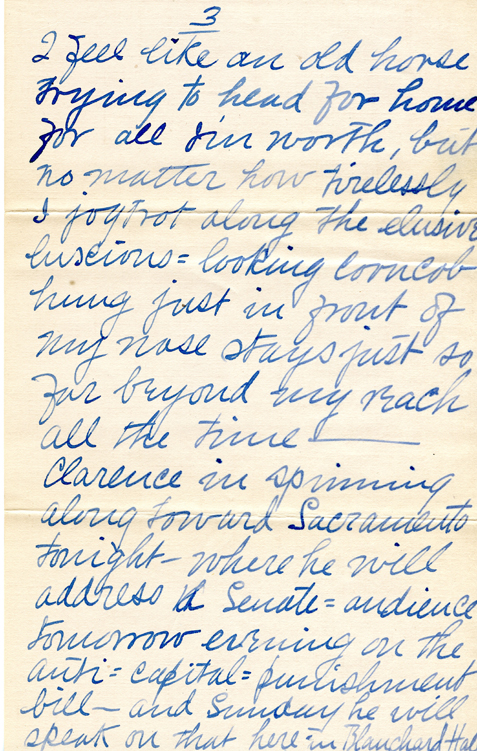 3
I feel like an old horse
trying to head for home
for all I'm worth, but
no matter how tirelessly
I jogtrot along the elusive
luscious=looking corncob
hung just in front of
my nose stays just so
far beyond my reach
all the time —
Clarence is spinning
along toward Sacramento
tonight — where he will
address th Senate=audience
tomorrow evening on the
anti=capital=punishment
bill — and Sunday he will
speak on that here — in Blanchard Hal